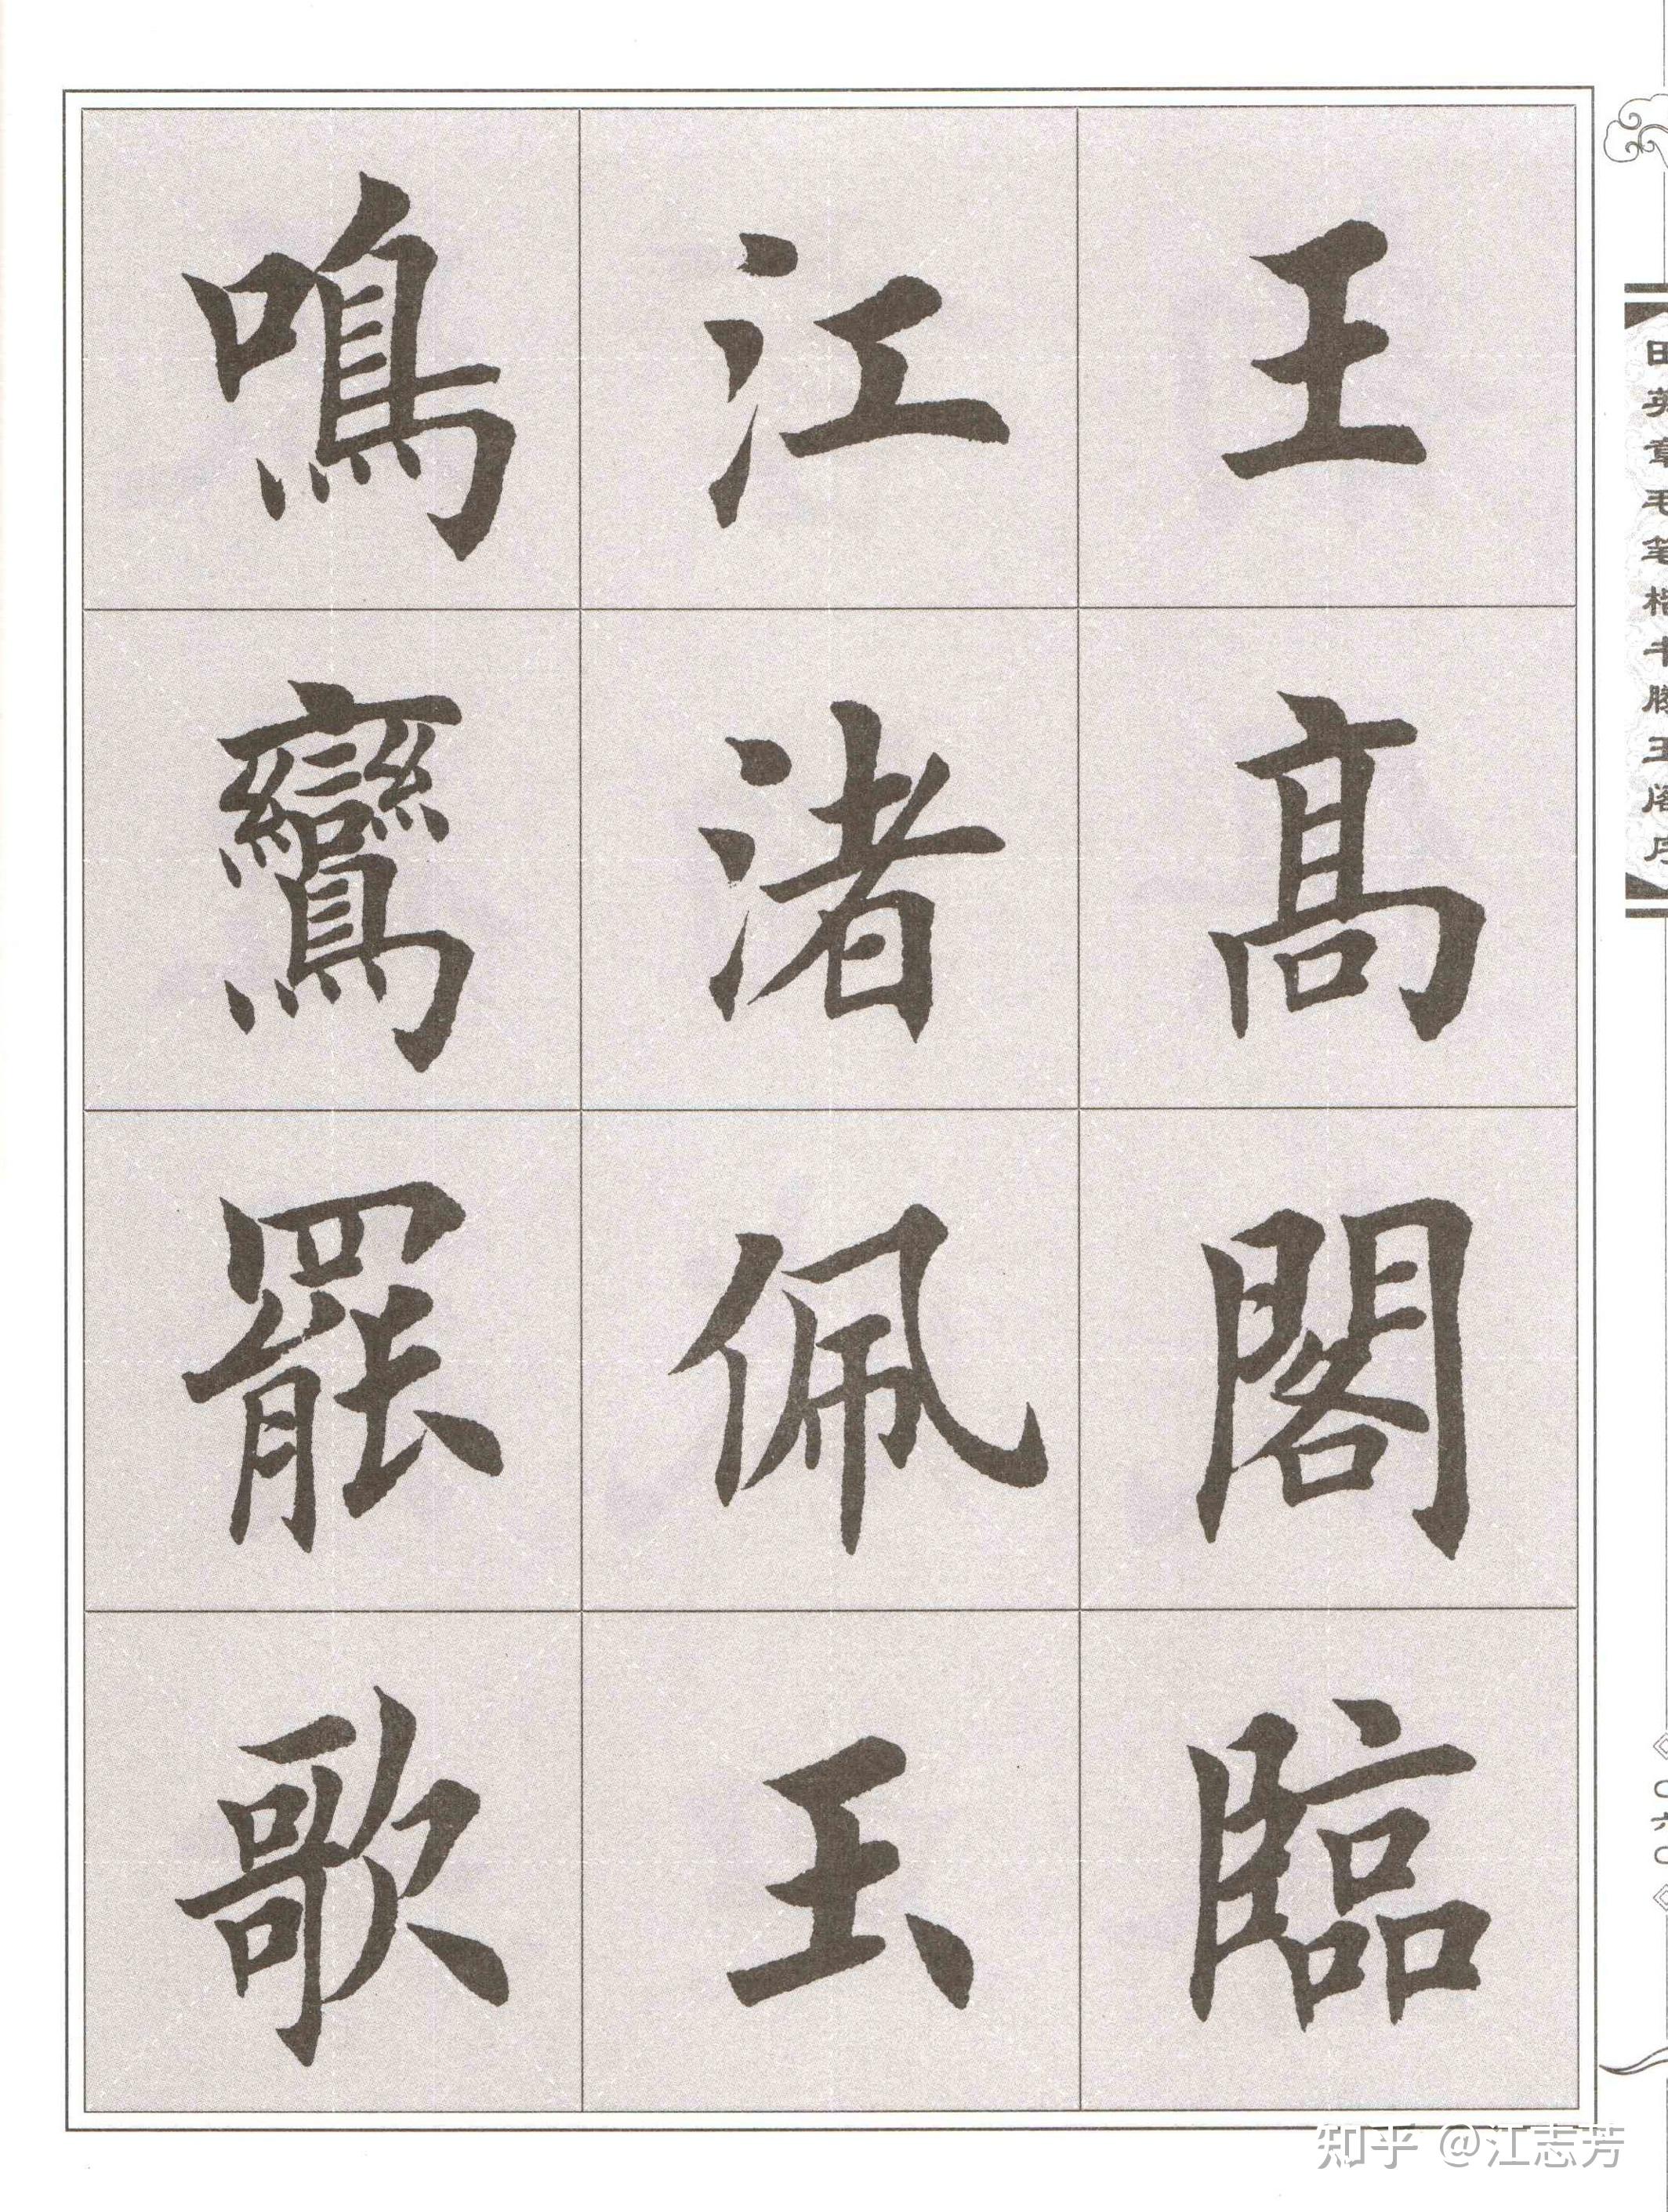 王高閣臨
江渚佩玉
鳴鸞罷歌
田英章毛笔楷书滕王阁序
〇六〇
知乎 @江志芳